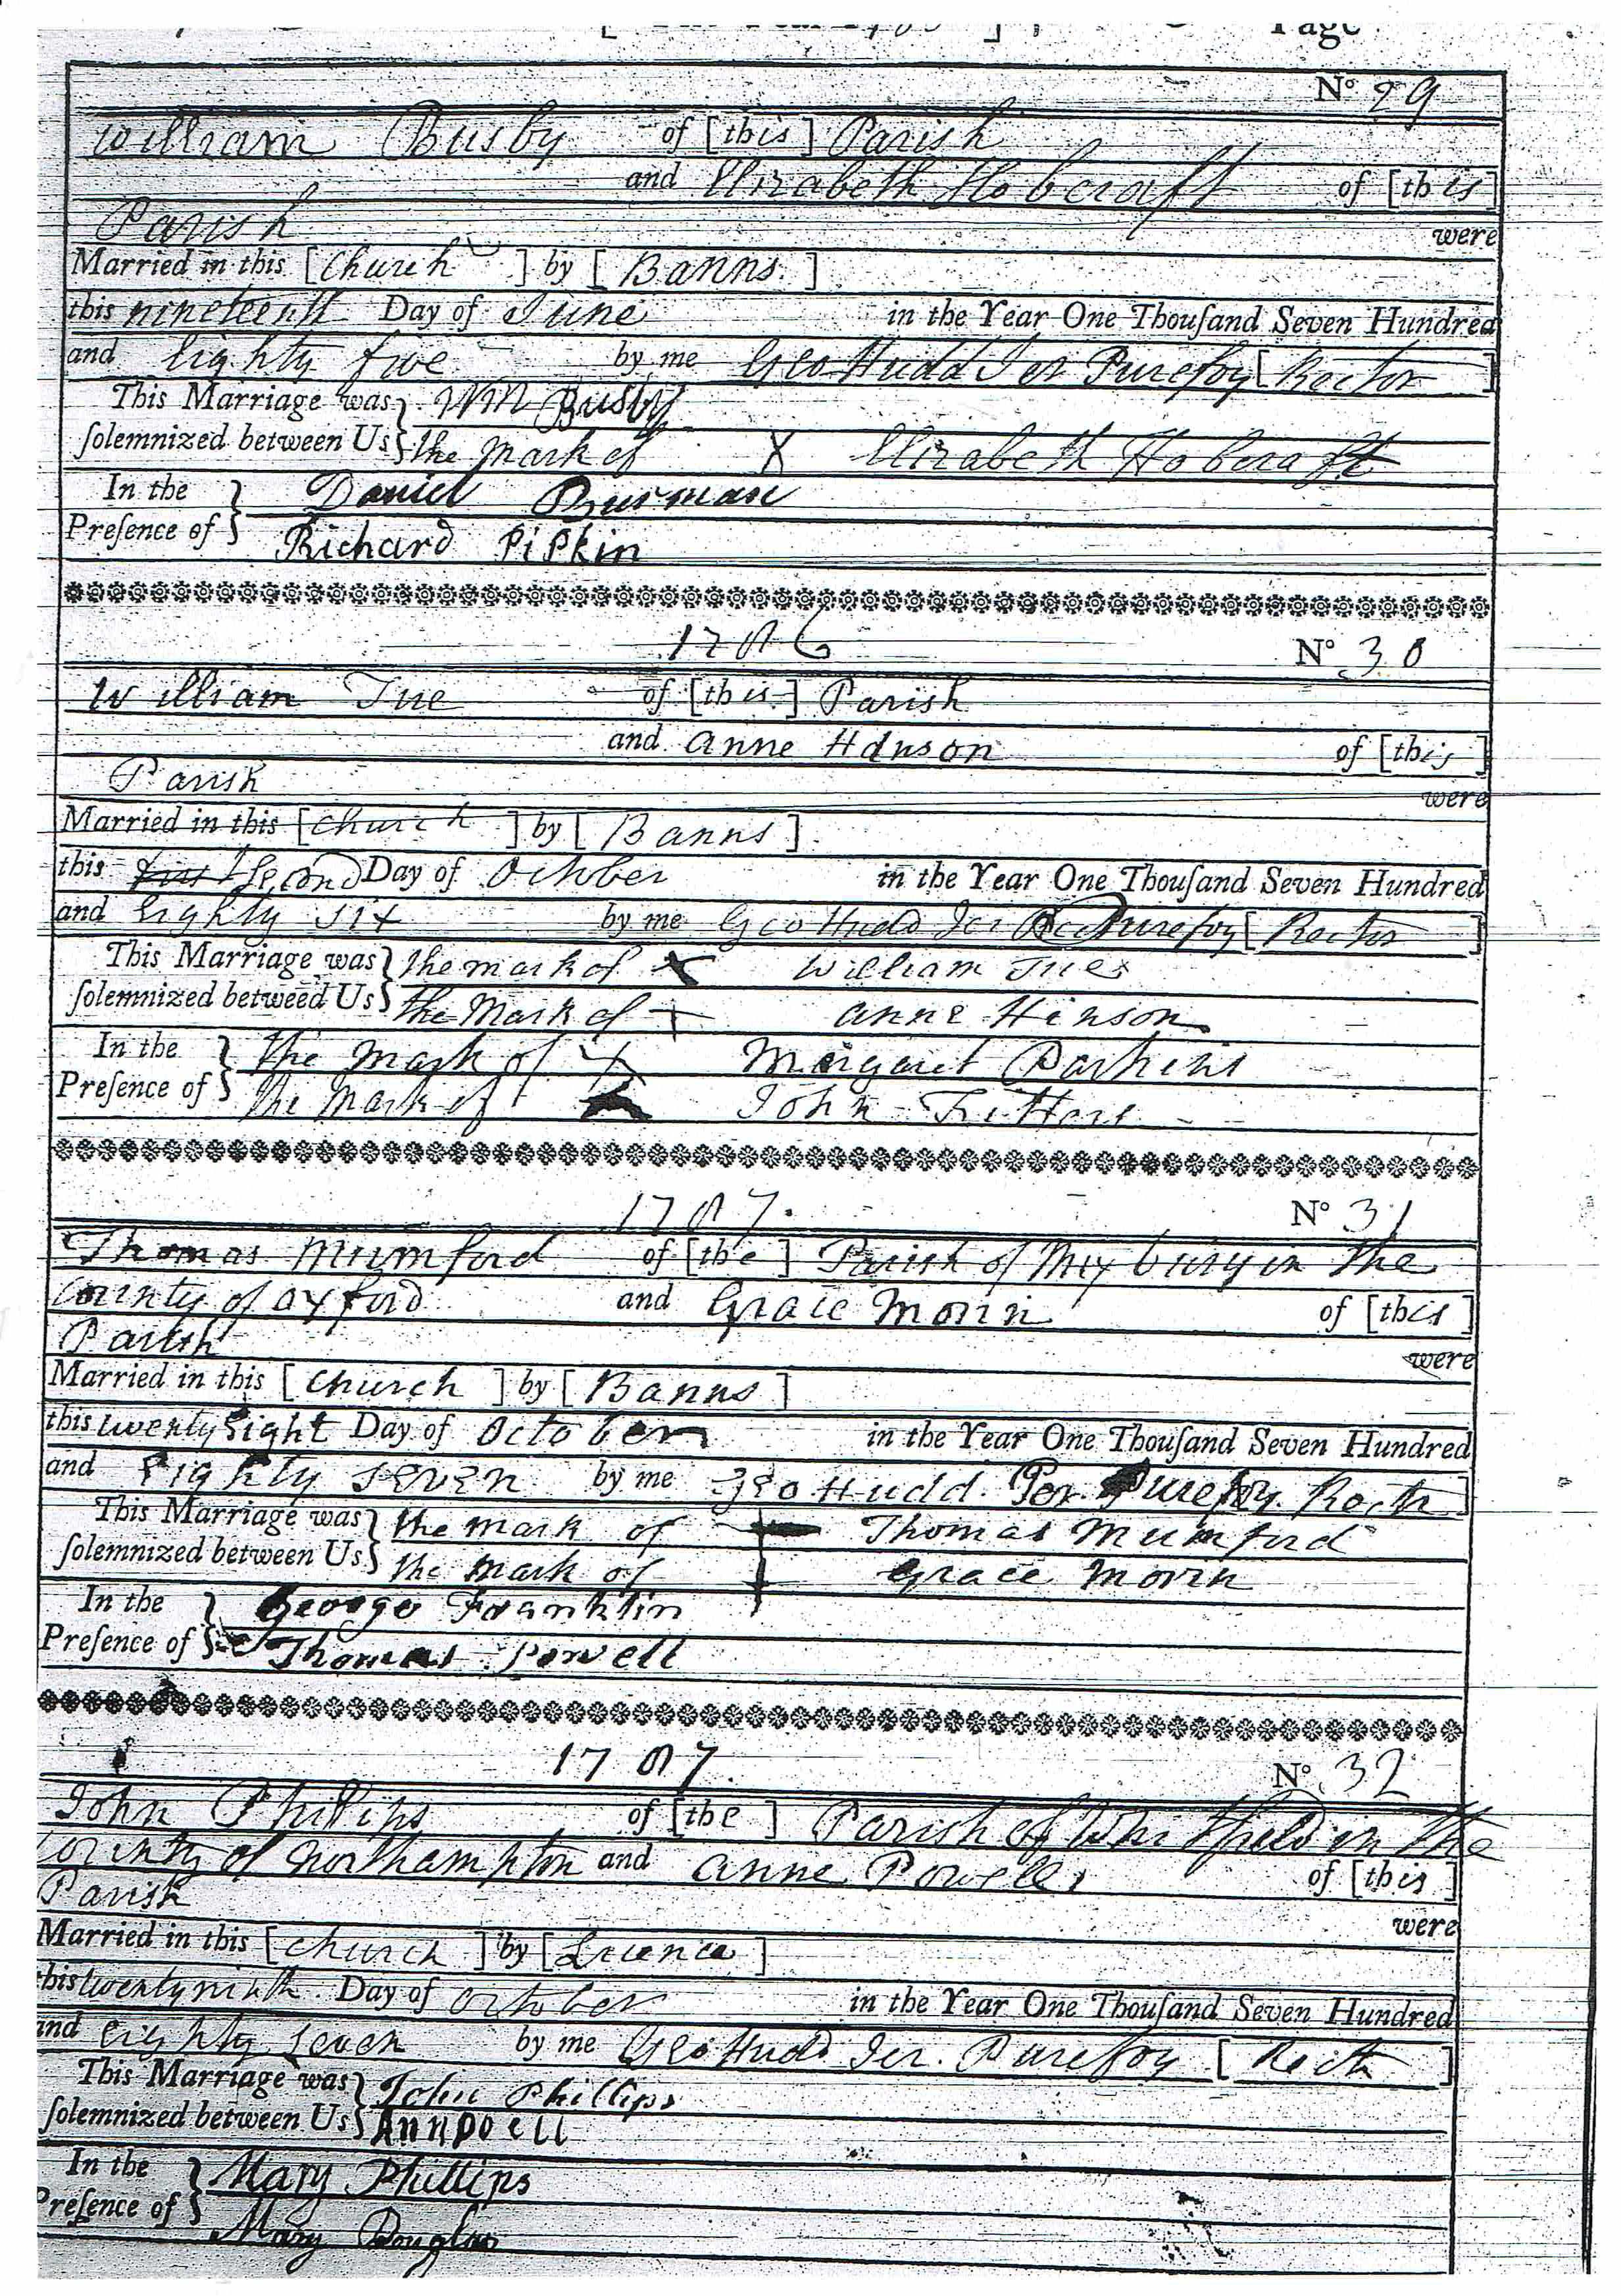 [ The Year 1785 ] Page
No 29
William Busby of [this] Parish
and Elizabeth Hobcraft of [this]
Parish were
Married in this [Church] by [Banns]
this nineteenth Day of June in the Year One Thouſand Seven Hundred
and Eighty five by me Geo Hudd Jer Purefoy [Rector]
This Marriage was } Wm Busby
ſolemnized between Us } the Mark of X Elizabeth Hobcraft
In the } Daniel Burman
Preſence of } Richard PiPkin
1786 No 30
William Tue of [this] Parish
and Anne Hinson of [this]
Parish were
Married in this [Church] by [Banns]
this first Second Day of October in the Year One Thouſand Seven Hundred
and Eighty six by me Geo Hudd Jer Purefoy [Rector]
This Marriage was } the mark of X William Tues
ſolemnized betweed Us } the Mark of X Anne Hinson
In the } the mark of X Margaret Parkins
Preſence of } the Mark of X John
1787. No 31
Thomas Mumford of [the] Parish of Mixbury in the
County of Oxford and Grace Morin of [this]
Parish were
Married in this [Church] by [Banns]
this twenty Eight Day of October in the Year One Thouſand Seven Hundred
and Eighty Seven by me Geo Hudd. Jer. Purefoy. Rectr]
This Marriage was } the mark of Thomas Mumford
ſolemnized between Us } the mark of Grace Morin
In the } George Franklin
Preſence of } Thomas Powell
1787. No 32
John Phillips of [the] Parish of Whitfield in the
County of Northampton and Anne Powell of [this]
Parish were
Married in this [Church] by [Licence]
this twenty ninth. Day of October in the Year One Thouſand Seven Hundred
and Eighty Seven by me Geo Hudd Jer. Purefoy [Rectr]
This Marriage was } John Phillips
ſolemnized between Us } Ann POell
In the } Mary Phillips
Preſence of } Mary Douglas